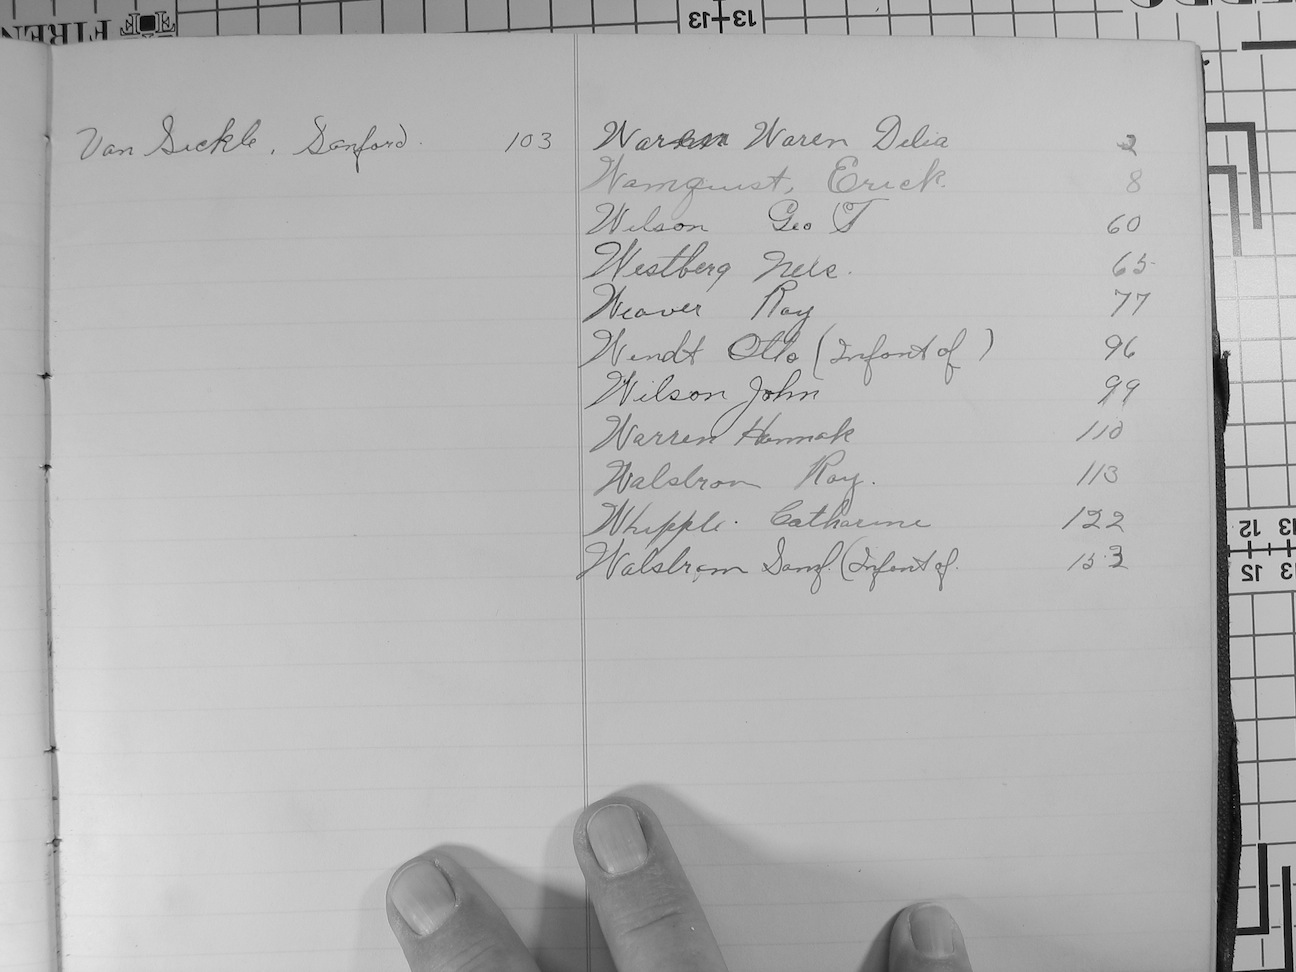 FIREN
13 13
Van Sickle, Sanford. 103
Waren Waren Delia 2
Wamquist, Erick. 8
Wilson Geo T 60
Westberg Nels. 65
Weaver Ray 77
Wendt Otto (Infant of) 96
Wilson John 99
Warren Hannah 110
Walstrom Ray. 113
Whipple. Catharine 122
Walstrom Sanf. (Infant of. 153
12 13
12 13